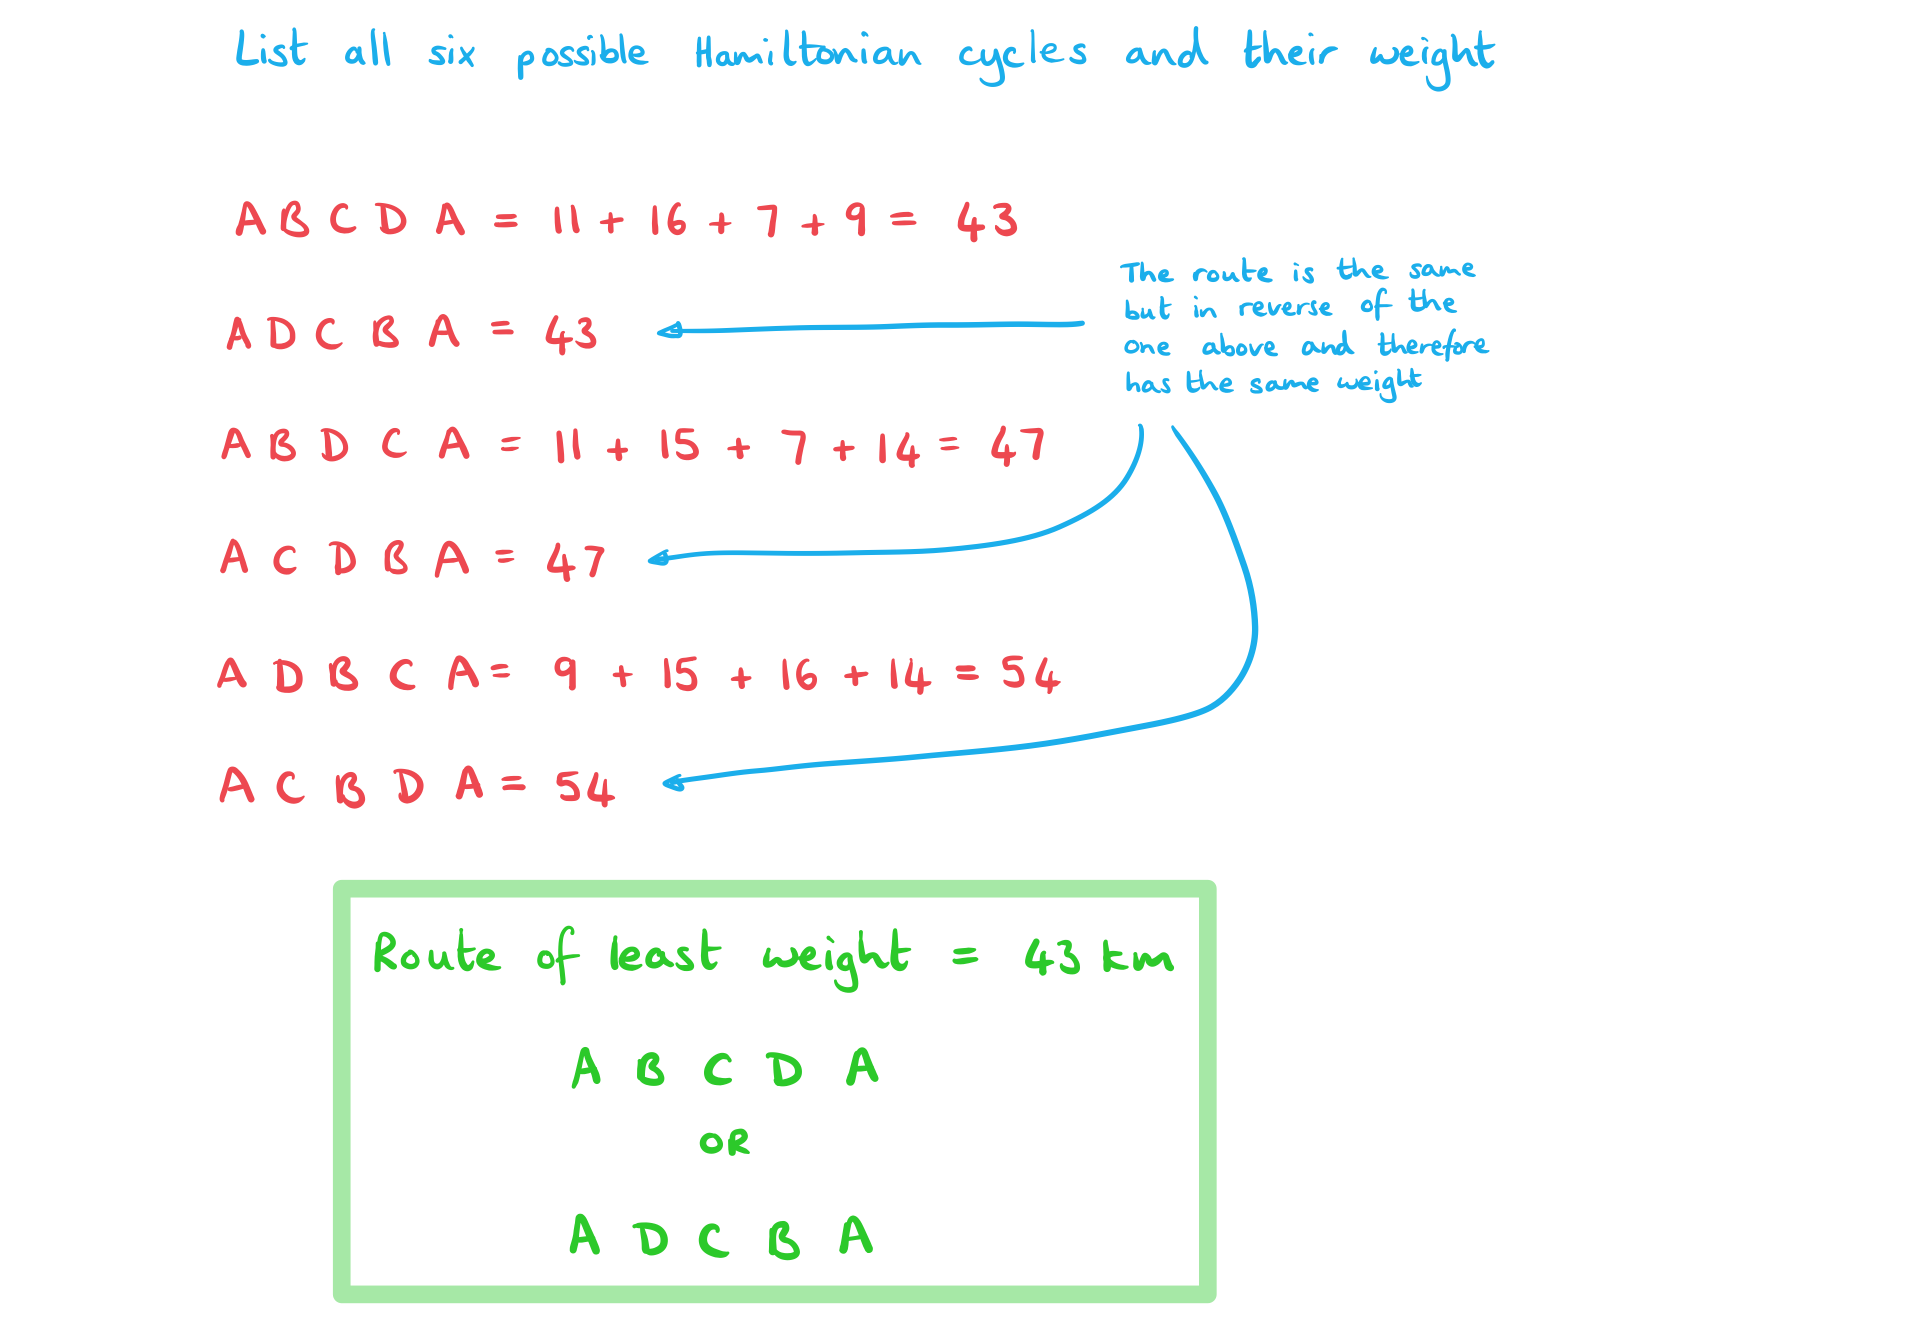 List all six possible Hamiltonian cycles and their weight
A B C D A = 11 + 16 + 7 + 9 = 43
The route is the same
but in reverse of the
one above and therefore
has the same weight
A D C B A = 43
A B D C A = 11 + 15 + 7 + 14 = 47
A C D B A = 47
A D B C A = 9 + 15 + 16 + 14 = 54
A C B D A = 54
Route of least weight = 43 km
A B C D A
OR
A D C B A